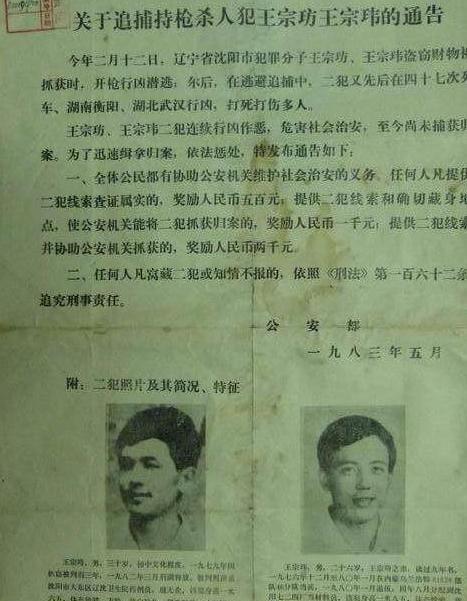 关于追捕持枪杀人犯王宗坊王宗玮的通告
今年二月十二日，辽宁省沈阳市犯罪分子王宗坊、王宗玮盗窃财物被
抓获时，开枪行凶潜逃；尔后，在逃避追捕中，二犯又先后在四十七次列
车、湖南衡阳、湖北武汉行凶，打死打伤多人。
王宗坊、王宗玮二犯连续行凶作恶，危害社会治安，至今尚未捕获归
案。为了迅速缉拿归案，依法惩处，特发布通告如下：
一、全体公民都有协助公安机关维护社会治安的义务。任何人凡提供
二犯线索查证属实的，奖励人民币五百元；提供二犯线索和确切藏身地
点，使公安机关能将二犯抓获归案的，奖励人民币一千元；提供二犯线索
并协助公安机关抓获的，奖励人民币两千元。
二、任何人凡窝藏二犯或知情不报的，依照《刑法》第一百六十二条
追究刑事责任。
公安部
一九八三年五月
附：二犯照片及其简况、特征
王宗坊，男，三十岁，初中文化程度，一九七九年因
王宗玮，男，二十六岁，王宗坊之弟，读过九年书。